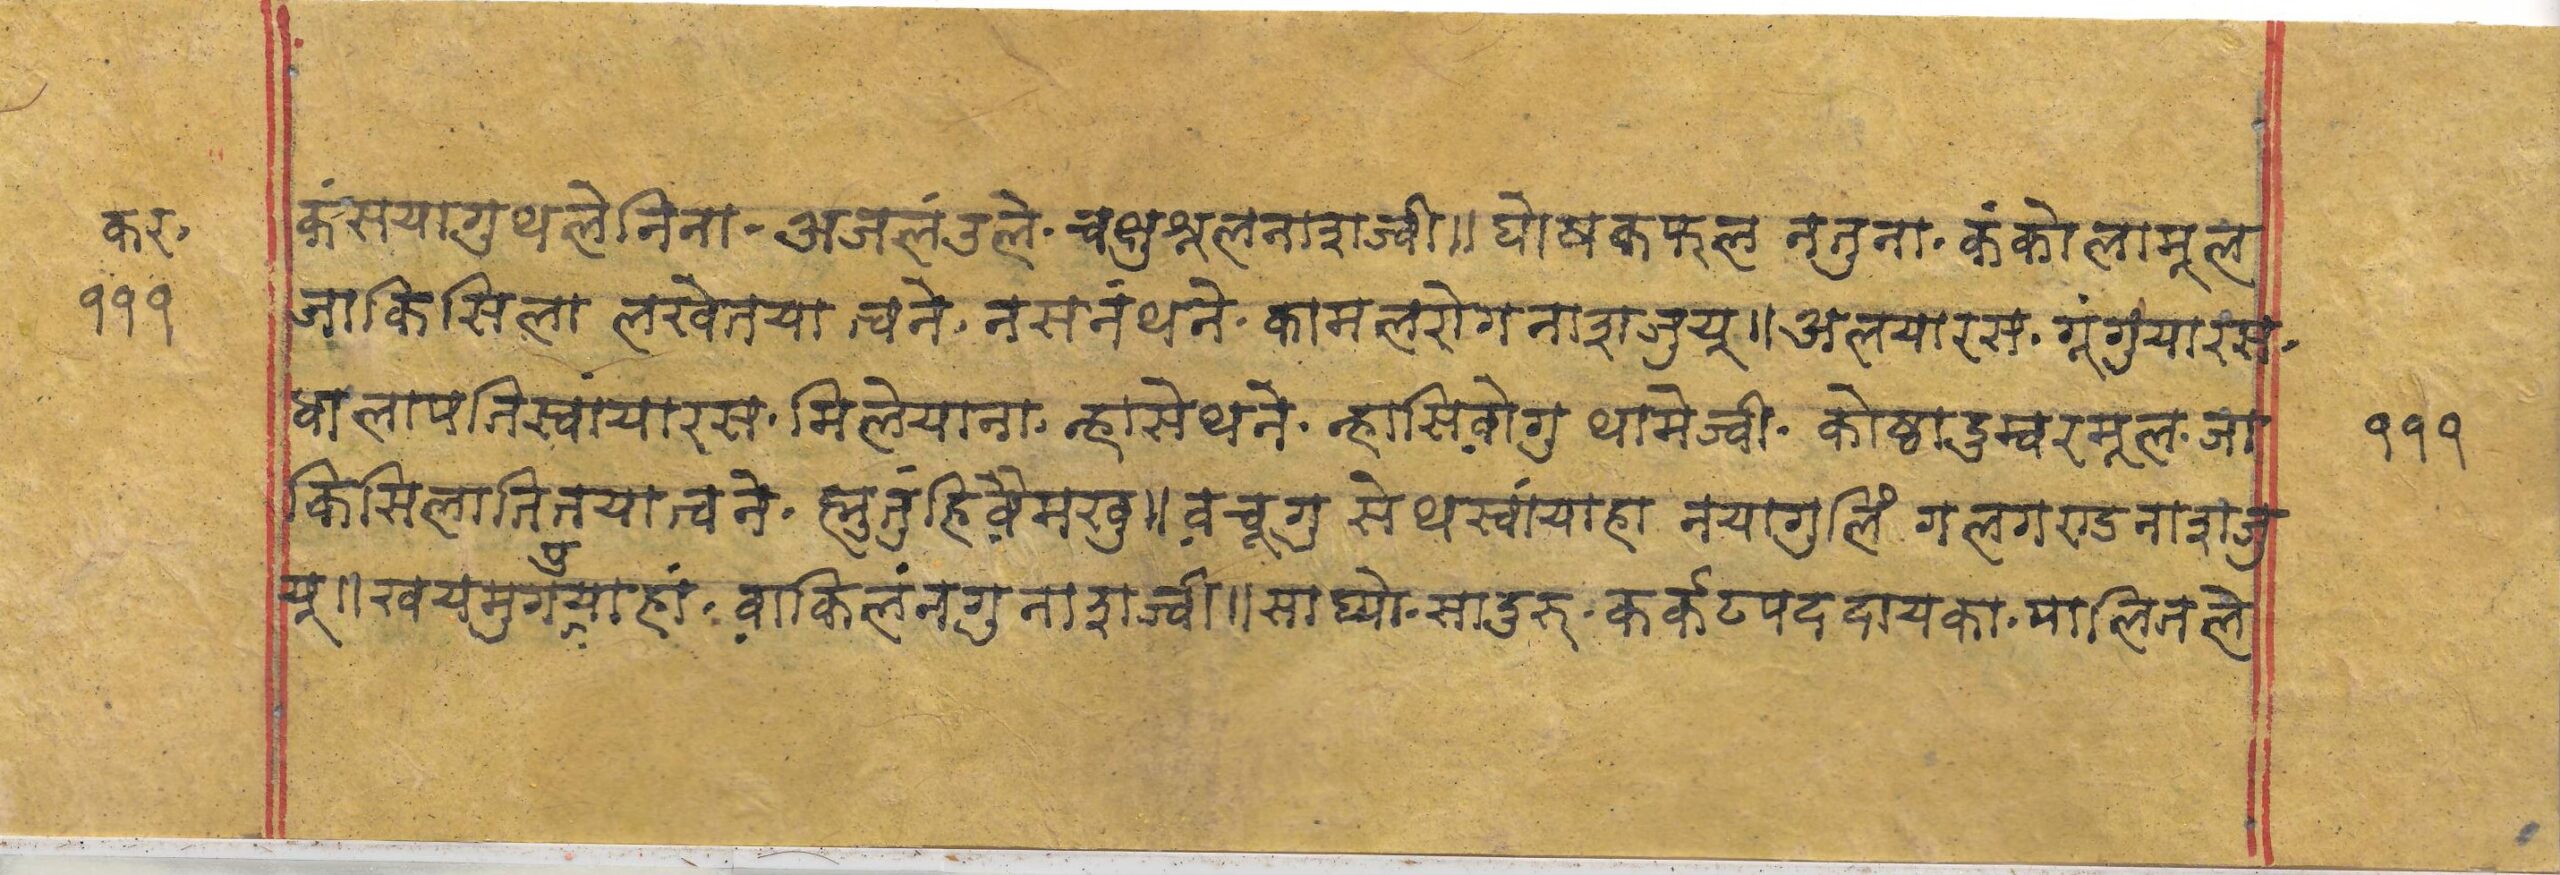 कर॰ कंसयागुथलेनिना॰ अजलंउले॰ चक्षुशूलनाशज्वी॥ घोषकफल नतुना॰ कंकोलामूल
१११ जाकिसिला लखेतया च्वने॰ नसनंथने॰ कामलरोगनाशजुयू॥ अलयारस॰ गूंगुयारस॰
धालापतिस्वांयारस॰ मिलेयाना॰ न्हासेथने॰ न्हासिवोगु थामेज्वी॰ कोष्ठाडुम्वरमूल॰ जा १११
किसिलातितयाच्वने॰ ह्नुतुंहिवैमखु॥ वचूगु सेथस्वांयाहा नयागुलिं गलगण्डनाशजु
यू॥ खयमुगुयाहां॰ वाकिलंनगु नाशज्वी॥ साघ्यो॰ सादुरु॰ कर्कटपददायका॰ पालितले